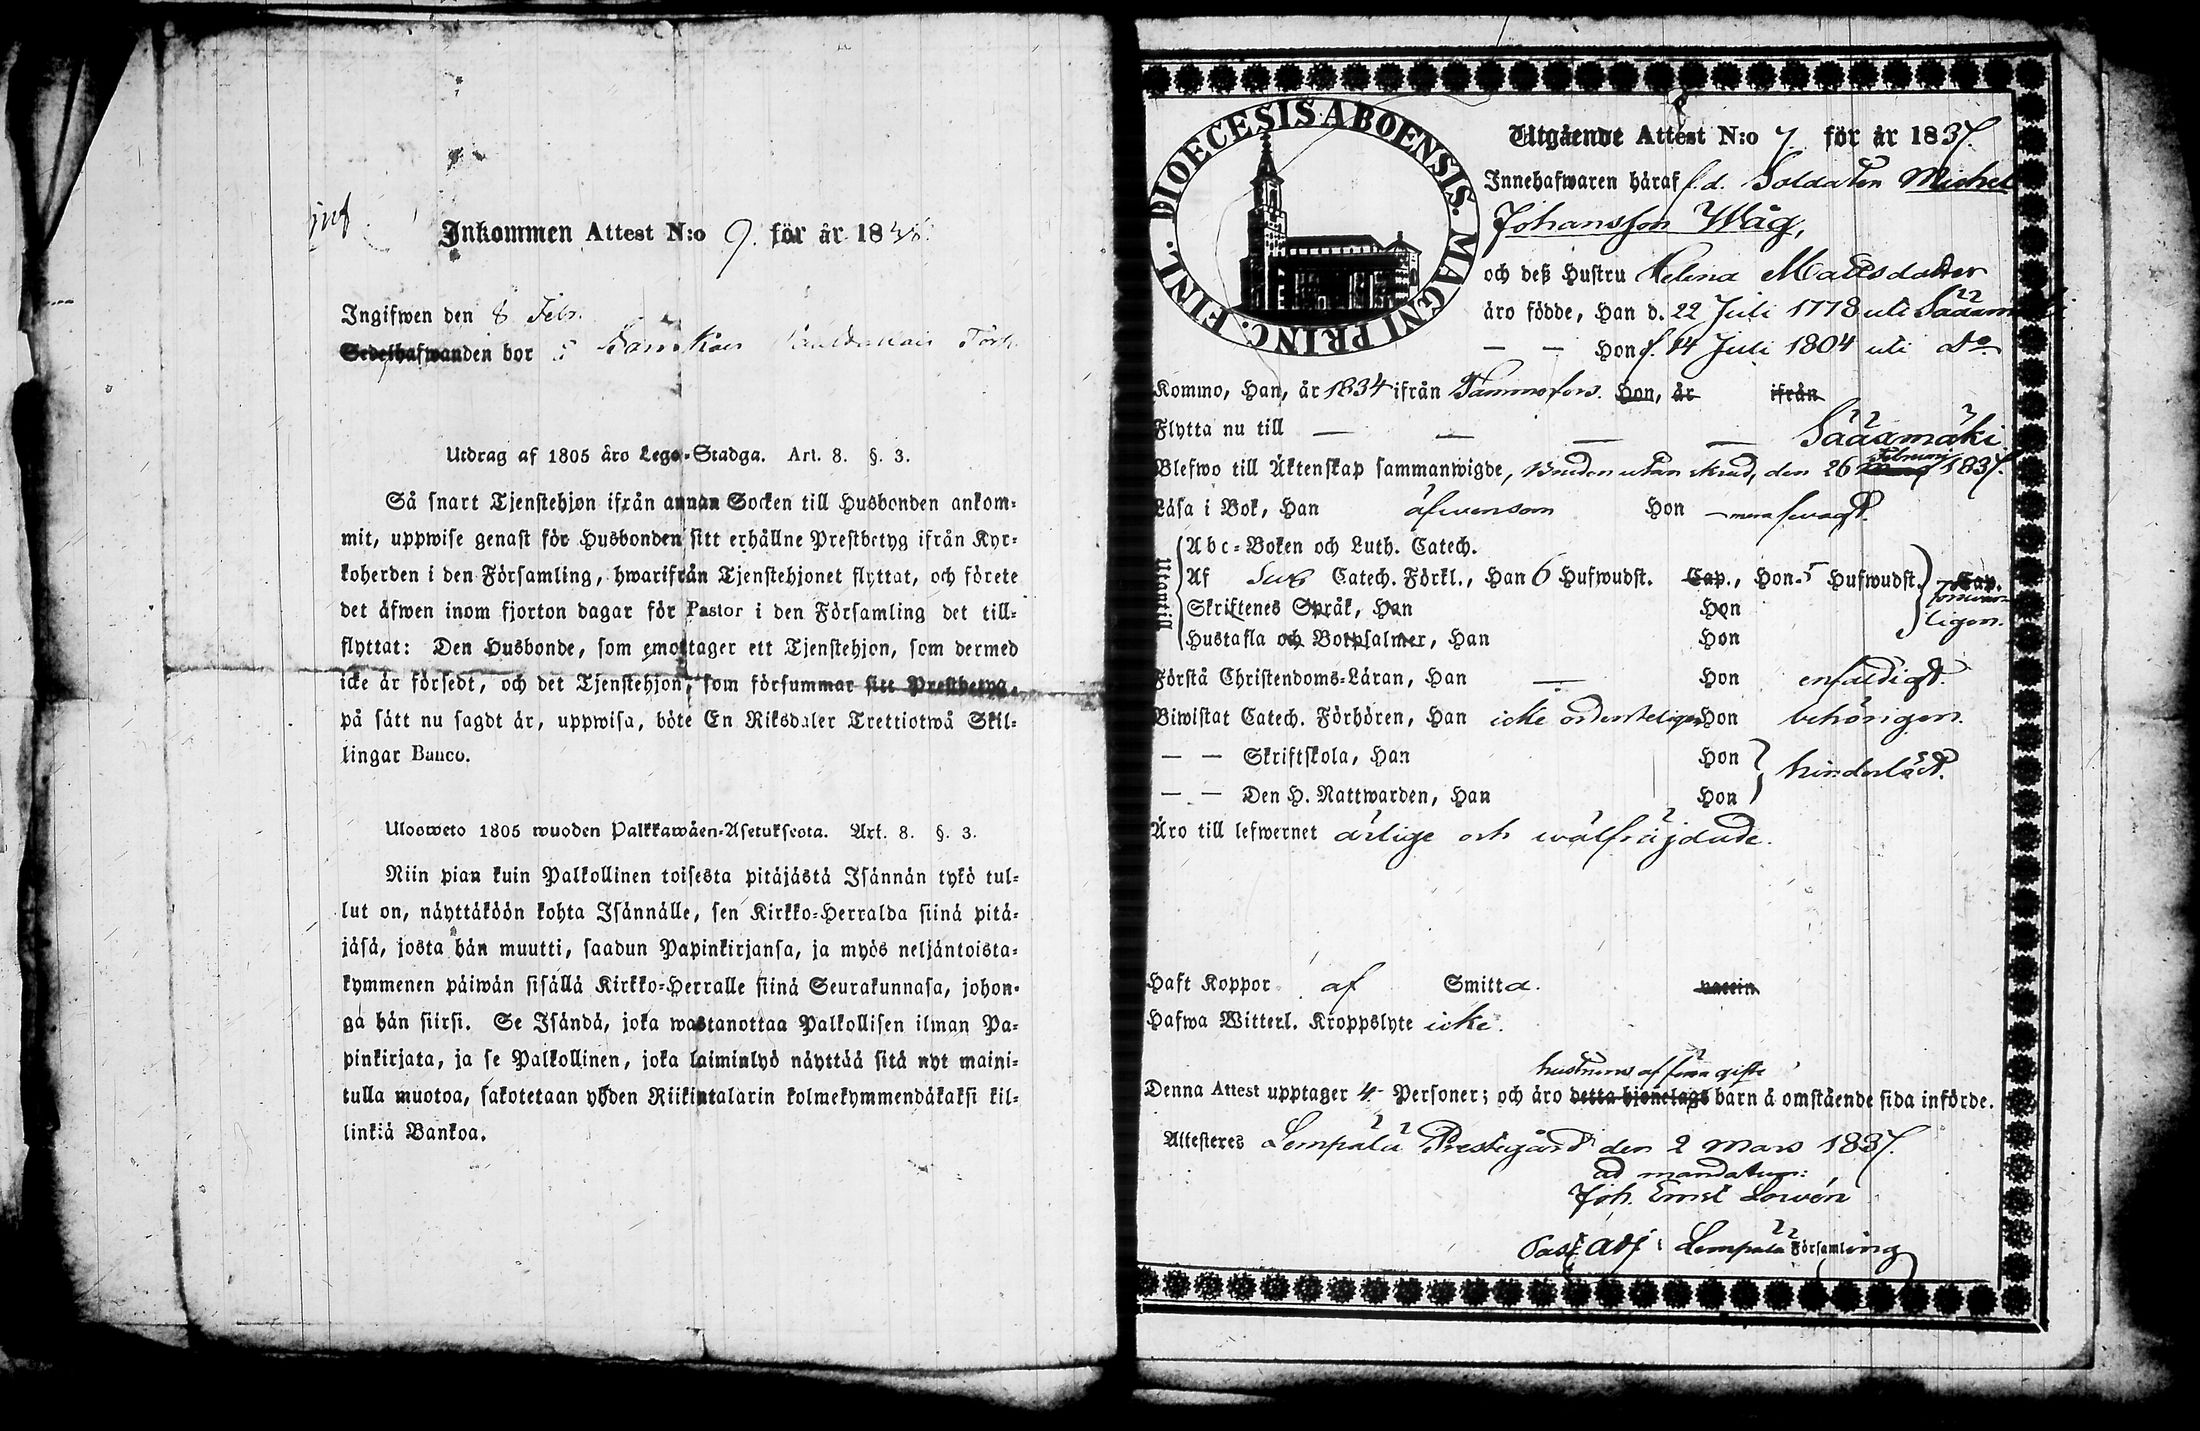 Inkommen Attest N:o 9. för år 18
Ingifwen den 8 Febr.
Sedelhafwanden bor
Utdrag af 1805 års Lego-Stadga. Art. 8. §. 3.
Så snart Tjenstehjon ifrån annan Socken till Husbonden ankom-
mit, uppwise genast för Husbonden sitt erhållne Prestbetyg ifrån Kyr-
koherden i den Församling, hwarifrån Tjenstehjonet flyttat, och förete
det äfwen inom fjorton dagar för Pastor i den Församling det till-
flyttat: Den Husbonde, som emottager ett Tjenstehjon, som dermed
icke är försedt, och det Tjenstehjon, som försummar sitt Prestbetyg,
på sätt nu sagdt är, uppwisa, böte En Riksdaler Trettiotwå Skil-
lingar Banco.
Ulosweto 1805 wuoden Palkkawäen-Asetuksesta. Art. 8. §. 3.
Niin pian kuin Palkollinen toisesta pitäjästä Isännän tykö tul-
lut on, näyttäköön kohta Isännälle, sen Kirkko-Herralda siinä pitä-
jäsä, josta hän muutti, saadun Papinkirjansa, ja myös neljäntoista-
kymmenen päiwän sisällä Kirkko-Herralle siinä Seurakunnasa, johon-
ga hän siirsi. Se Isändä, joka wastanottaa Palkollisen ilman Pa-
pinkirjata, ja se Palkollinen, joka laiminlyö näyttää sitä nyt maini-
tulla muotoa, sakotetaan yhden Riikintalarin kolmekymmendäkaksi kil-
linkiä Bankoa.
DIOECESIS ABOENSIS. MAGNI PRINC. FINL.
Utgående Attest N:o 7. för år 1837.
Innehafwaren häraf f.d. Soldaten Michel
Johansson Wåg,
och deß Hustru Helena Mattsdotter
äro födde, Han d. 22 Juli 1778 uti Sääxmäki
— — Hon f. 14 Juli 1804 uti do
Kommo, Han, år 1834 ifrån Tammerfors. Hon, år ifrån
Flytta nu till — — — — Sääxmäki
Blefwo till Äktenskap sammanwigde, Bruden utan skrud, den 26 Februarii 1837.
Läsa i Bok, Han äfwensom Hon swagt.
Utantill
Abc-Boken och Luth. Catech.
Af Catech. Förkl., Han 6 Hufwudst. Cap., Hon 5 Hufwudst. Cap.
Skriftenes Språk, Han Hon
Hustafla och Botpsalmer, Han Hon
Förstå Christendoms-Läran, Han — Hon enfaldigt.
Biwistat Catech. Förhören, Han icke ordenteligen Hon behörigen.
— — Skriftskola, Han Hon
hinderlöst.
— — Den H. Nattwarden, Han Hon
Äro till lefwernet ärlige och wälfräjdade.
Haft Koppor af Smitta. vaccin
Hafwa Witterl. Kroppslyte icke.
hustruns af förra gifte
Denna Attest upptager 4 Personer; och äro detta hjonelags barn å omstående sida införde.
Attesteres Lempälä Prestegård den 2 Mars 1837.
ad mandatum:
Joh. Ernst Lowén
Past. Adj. i Lempälä Församling